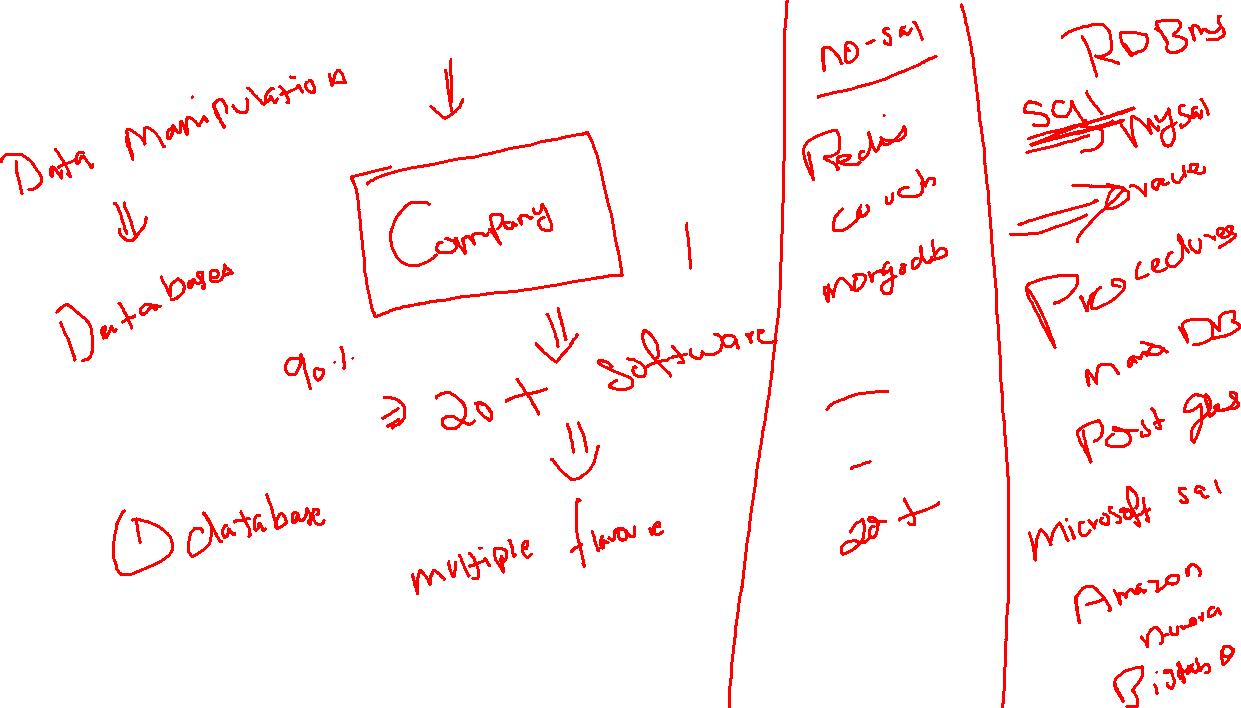 Data Manipulation
Databases
Company
90%
20+ software
multiple flavour
① database
no-sql
Redis
couch
mongodb
20+
RDBms
sql
mysql
oracle
Procedures
Maria DB
Post gres
Microsoft sql
Amazon